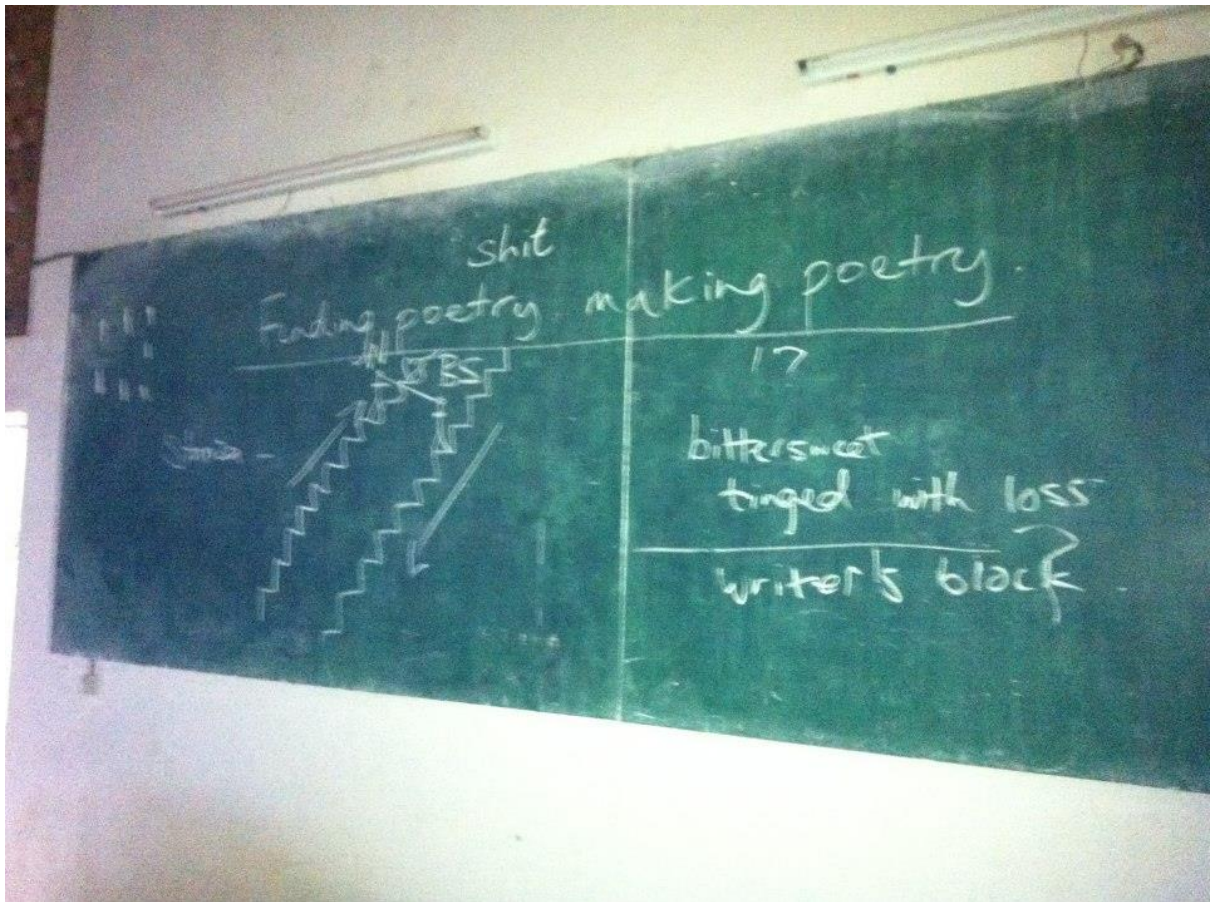 shit
Finding poetry. making poetry.
BS
17
bittersweet
tinged with loss
writer's block